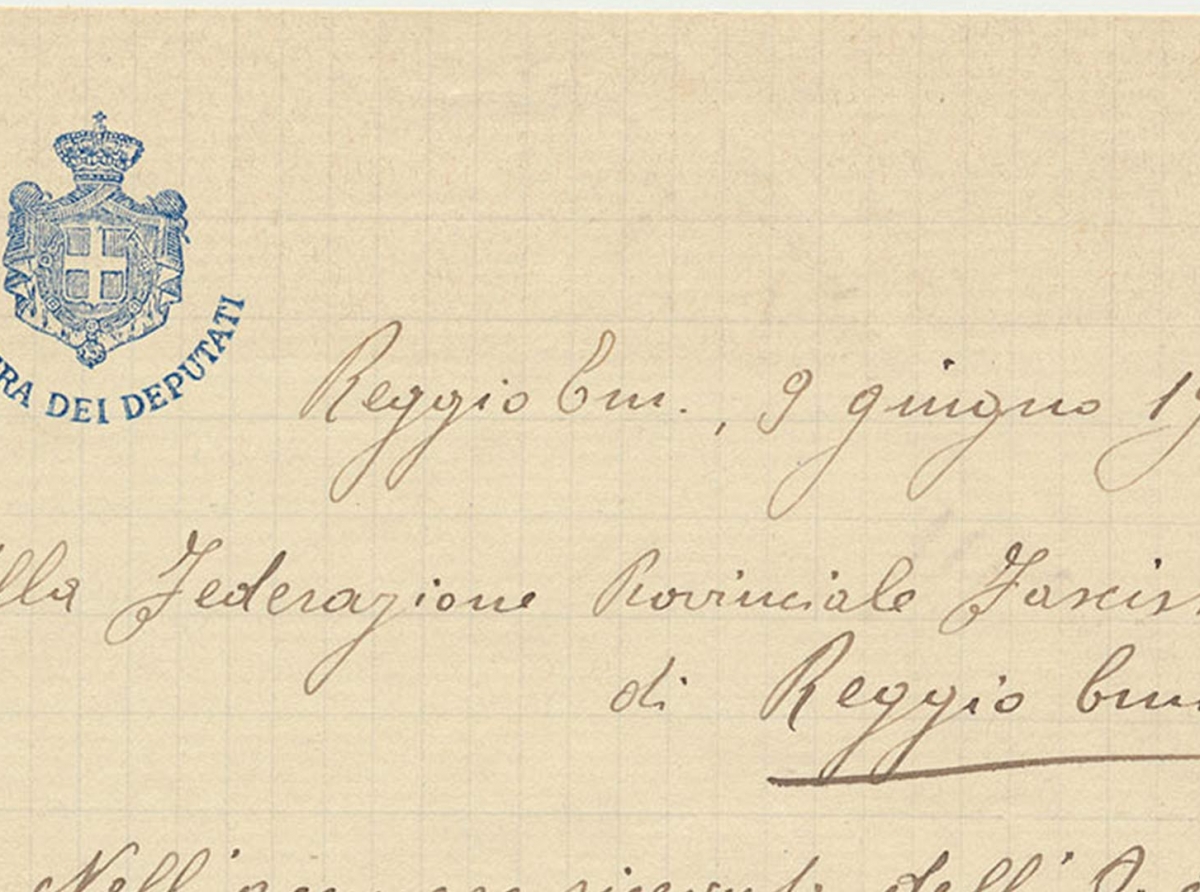 RA DEI DEPUTATI
Reggio Em., 9 giugno 19
lla Federazione Provinciale Fascis
di Reggio Em
Nell' dell'